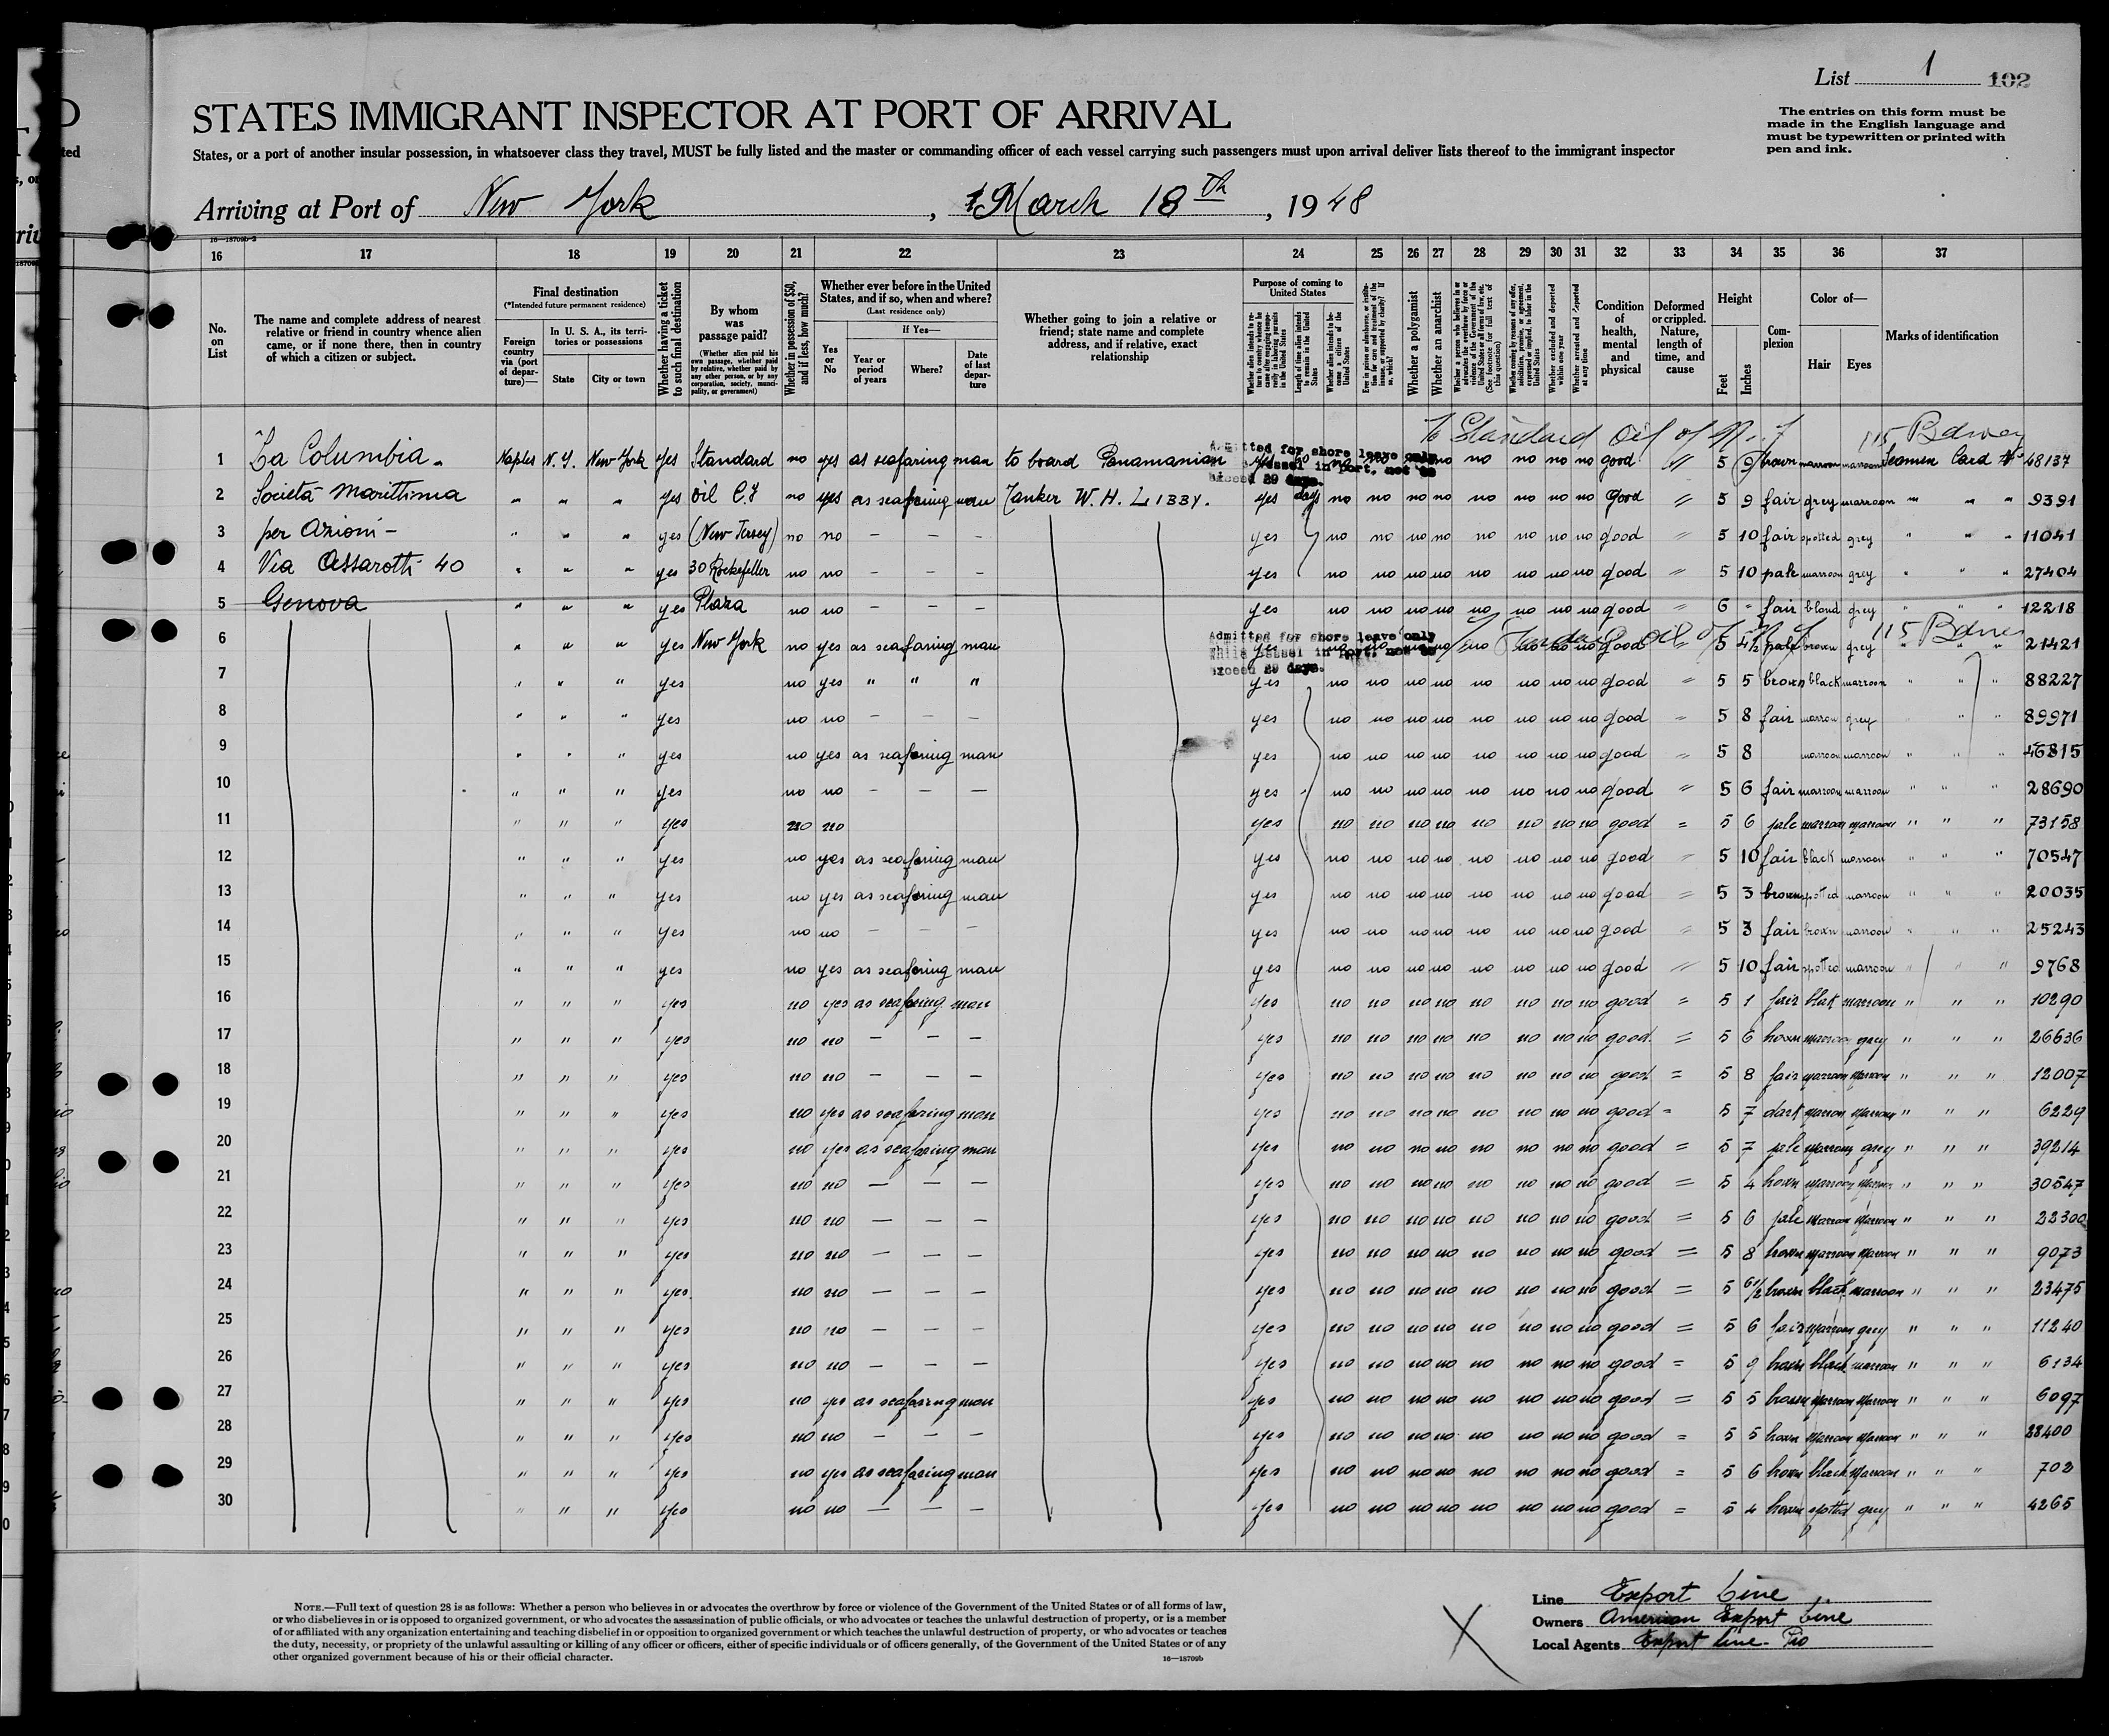 List 1 102
The entries on this form must be
made in the English language and
must be typewritten or printed with
pen and ink.
STATES IMMIGRANT INSPECTOR AT PORT OF ARRIVAL
States, or a port of another insular possession, in whatsoever class they travel, MUST be fully listed and the master or commanding officer of each vessel carrying such passengers must upon arrival deliver lists thereof to the immigrant inspector
Arriving at Port of New York, March 18th, 1948
16—18709b-2
16 17 18 19 20 21 22 23 24 25 26 27 28 29 30 31 32 33 34 35 36 37
No. on List
The name and complete address of nearest relative or friend in country whence alien came, or if none there, then in country of which a citizen or subject.
Final destination
(*Intended future permanent residence)
Foreign country via (port of departure)—
In U. S. A., its territories or possessions
State City or town
Whether having a ticket to such final destination
By whom was passage paid?
(Whether alien paid his own passage, whether paid by relative, whether paid by any other person, or by any corporation, society, municipality, or government)
Whether in possession of $50, and if less, how much?
Whether ever before in the United States, and if so, when and where?
(Last residence only)
Yes or No
If Yes—
Year or period of years Where? Date of last departure
Whether going to join a relative or friend; state name and complete address, and if relative, exact relationship
Purpose of coming to United States
Length of time alien intends to remain in the United States
Whether alien intends to become a citizen of the United States
Whether a polygamist
Whether an anarchist
Whether excluded and deported within one year
Whether arrested and deported at any time
Condition of health, mental and physical
Deformed or crippled. Nature, length of time, and cause
Height
Feet Inches
Complexion
Color of—
Hair Eyes
Marks of identification
To Standard Oil of N.J. 115 Bdway
Admitted for shore leave only
while vessel in port, not to
exceed 29 days.
1 La Columbia Naples N.Y. New York yes Standard no yes as seafaring man to board Panamanian yes no no no no no no no no good " 5 9 brown marroon marroon Seamen Card N° 48137
2 Società Marittima " " " yes Oil C.I no yes as seafaring man Tanker W. H. LIBBY. yes days no no no no no no no no good " 5 9 fair grey marroon " " " 9391
3 per Azioni - " " " yes (New Jersey) no no — — — yes no no no no no no no no good " 5 10 fair spotted grey " " " 11041
4 Via Assarotti 40 " " " yes 30 Rockefeller no no — — — yes no no no no no no no no good " 5 10 pale marroon grey " " " 27404
5 Genova " " " yes Plaza no no — — — yes no no no no no no no no good " 6 " fair bland grey " " " 12218
Admitted for shore leave only
while vessel in port, not to
exceed 29 days.
To Standard Oil of N J 115 Bdway
6 " " " yes New York no yes as seafaring man yes no no no no no no no no good " 5 4½ pale brown grey " " " 21421
7 " " " yes no yes " " " yes no no no no no no no no good " 5 5 brown black marroon " " " 88227
8 " " " yes no no — — — yes no no no no no no no no good " 5 8 fair marron grey " " 89971
9 " " " yes no yes as seafaring man yes no no no no no no no no good " 5 8 marroon marroon " " " 46815
10 " " " yes no no — — — yes no no no no no no no no good " 5 6 fair marroon marroon " " " 28690
11 " " " yes no no yes no no no no no no no no good = 5 6 pale marroon marroon " " " 73158
12 " " " yes no yes as seafaring man yes no no no no no no no no good " 5 10 fair black marroon " " " 70547
13 " " " yes no yes as seafaring man yes no no no no no no no no good " 5 3 brown spotted marroon " " " 20035
14 " " " yes no no — — — yes no no no no no no no no good " 5 3 fair brown marroon " " " 25243
15 " " " yes no yes as seafaring man yes no no no no no no no no good " 5 10 fair spotted marroon " " " 9768
16 " " " yes no yes as seafaring man yes no no no no no no no no good = 5 1 fair blak marroon " " " 10290
17 " " " yes no no — — — yes no no no no no no no no good = 5 6 brown marroon grey " " " 26636
18 " " " yes no no — — — yes no no no no no no no no good = 5 8 fair marroon marroon " " " 12007
19 " " " yes no yes as seafaring man yes no no no no no no no no good = 5 7 dark marron marroon " " " 6229
20 " " " yes no yes as seafaring man yes no no no no no no no no good = 5 7 pale marroon grey " " " 39214
21 " " " yes no no — — — yes no no no no no no no no good = 5 4 brown marroon marroon " " " 30547
22 " " " yes no no — — — yes no no no no no no no no good = 5 6 pale marron marroon " " " 22300
23 " " " yes no no — — — yes no no no no no no no no good = 5 8 brown marroon marroon " " " 9073
24 " " " yes no no — — — yes no no no no no no no no good = 5 6½ brown black marroon " " " 23475
25 " " " yes no no — — — yes no no no no no no no no good = 5 6 fair marroon grey " " " 11240
26 " " " yes no no — — — yes no no no no no no no no good = 5 9 brown black marroon " " " 6134
27 " " " yes no yes as seafaring man yes no no no no no no no no good = 5 5 brown marroon marroon " " " 6097
28 " " " yes no no — — — yes no no no no no no no no good = 5 5 brown marroon marroon " " " 28400
29 " " " yes no yes as seafaring man yes no no no no no no no no good = 5 6 brown black marroon " " " 702
30 " " " yes no no — — — yes no no no no no no no no good = 5 4 brown spotted grey " " " 4265
NOTE.—Full text of question 28 is as follows: Whether a person who believes in or advocates the overthrow by force or violence of the Government of the United States or of all forms of law,
or who disbelieves in or is opposed to organized government, or who advocates the assassination of public officials, or who advocates or teaches the unlawful destruction of property, or is a member
of or affiliated with any organization entertaining and teaching disbelief in or opposition to organized government or which teaches the unlawful destruction of property, or who advocates or teaches
the duty, necessity, or propriety of the unlawful assaulting or killing of any officer or officers, either of specific individuals or of officers generally, of the Government of the United States or of any
other organized government because of his or their official character.
16—18709b
Line Export Line
Owners American Export Line
Local Agents Export line - Pio